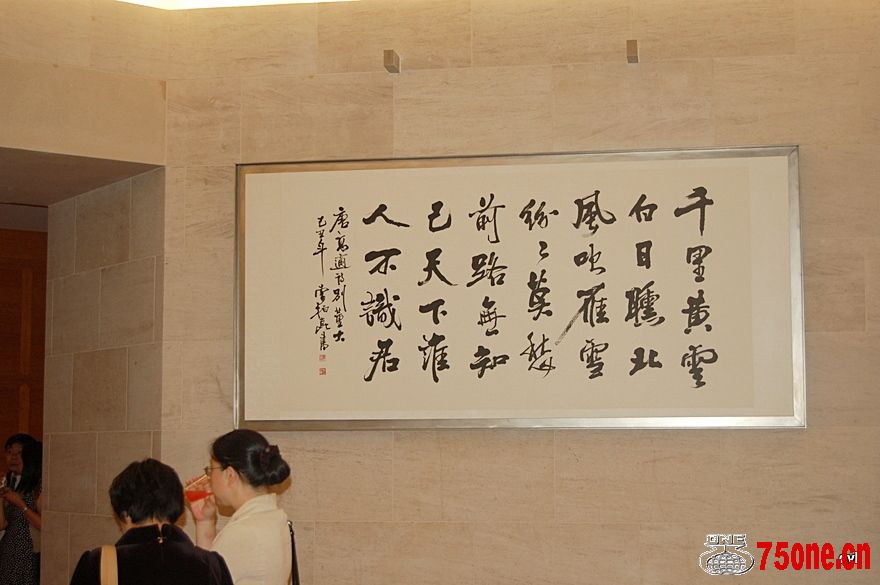 千里黄雲
白日曛北
風吹雁雪
紛々莫愁
前路無知
己天下誰
人不識君
唐高適詩別董大
己丑年 書
ONE
75one.cn